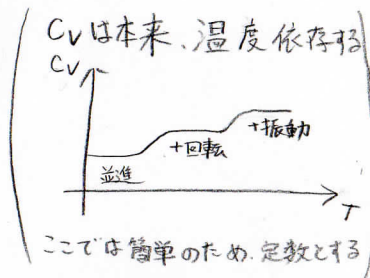 Cvは本来、温度依存する
Cv
+振動
+回転
並進
T
ここでは簡単のため、定数とする